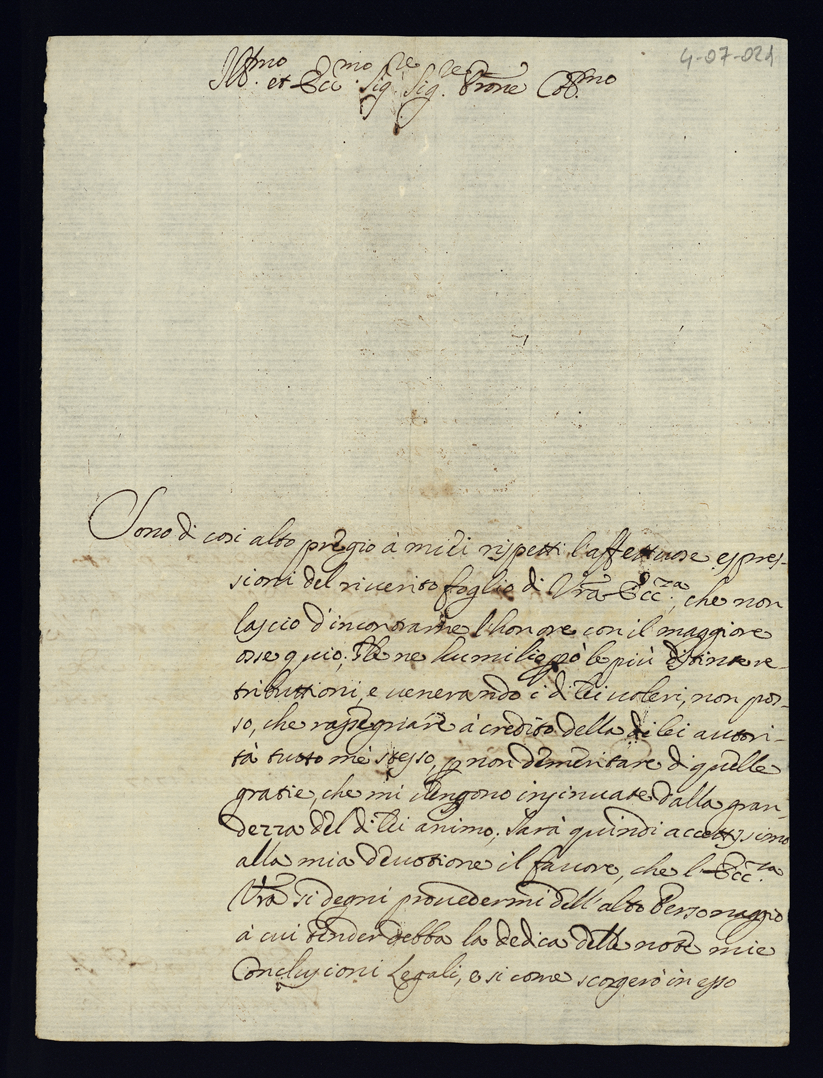 4-07-021
Ill.mo et Ecc.mo Sig.re Sig.re Prone Col.mo
Sono di così alto pregio à miei rispetti l'affettuose espres-
sioni del riverito foglio di Vrã Ecc.za, che non
lascio d'incontrarne l'honore con il maggiore
ossequio; Glie ne humilio però le più distinte re-
tributioni, e venerando i di Lei voleri, non pos-
so, che rassegnare à credito della di lei autori-
tà tutto mè stesso, p non demeritare di quelle
gratie, che mi vengono insinuate dalla gran-
dezza del di Lei animo; Sarà quindi accettissimo
alla mia devotione il favore, che l'Ecc.za
Vrã si degni provedermi dell'alto Personaggio
à cui tender debba la dedica delle note mie
Conclusioni Legali, e si come scorgerò in esso